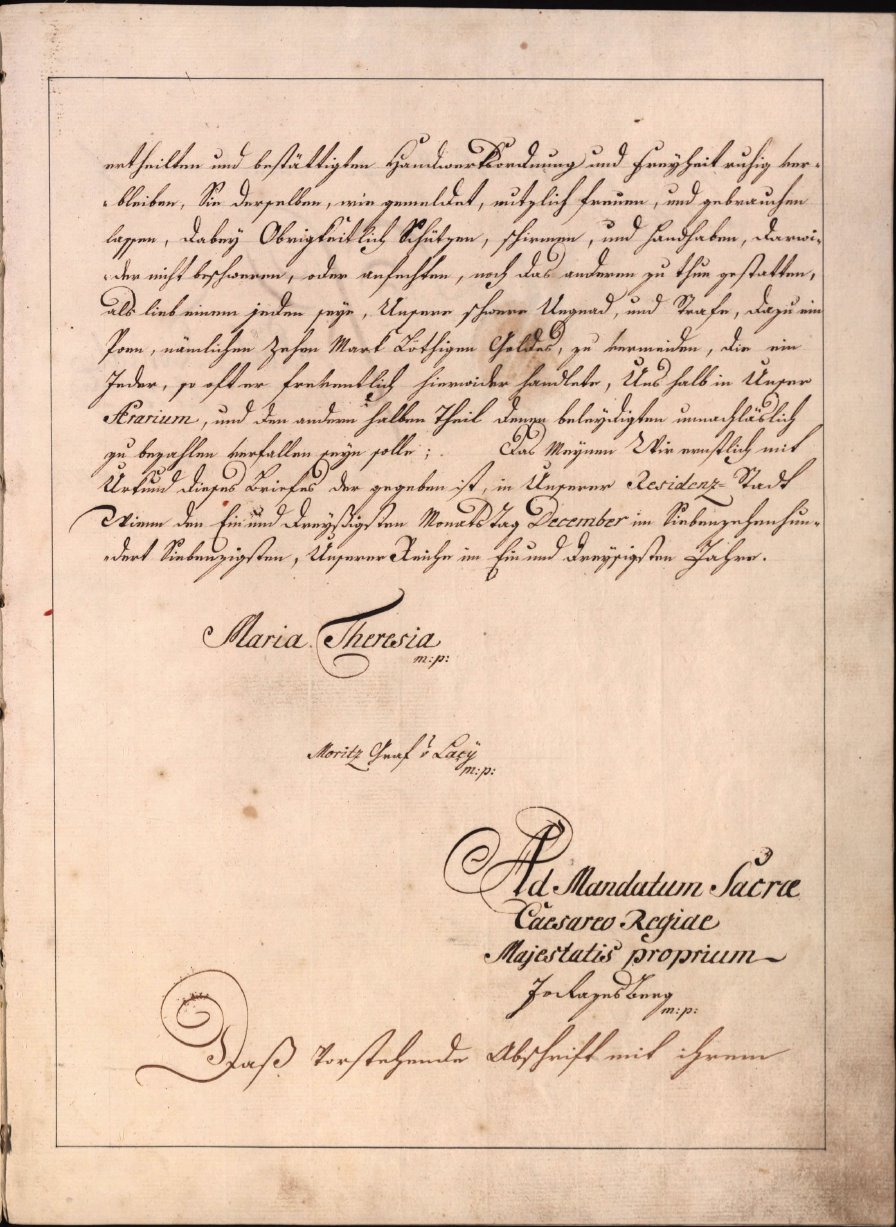 ertheilten und bestättigten Handwerksordnung und Freyheit ruhig ver-
-bleiben, Sie derselben, wie gemeldet, nutzlich freuen, und gebrauchen
lassen, dabey Obrigkeitlich Schützen, schirmen, und handhaben, darwi-
-der nicht beschweren, oder anfechten, noch das anderen zu thun gestatten,
als lieb einem jeden seye, Unsere schwere Ungnad, und Strafe, dazu ein
Poen, nämlichen Zehen Mark Löthigen Goldes, zu vermeiden, die ein
Jeder, so oft er freventlich hierwider handlete, Uns halb in Unser
Ærarium, und den andern halben Theil denen beleydigten unnachläslich
zu bezahlen verfallen seyn solle; Das Meynen Wir ernstlich mit
Urkund dieses Briefes der gegeben ist, in Unserer Residenz-Stadt
Wienn den Ein und Dreyßigsten Monats Tag December im Siebenzehenhun-
-dert Siebenzigsten, Unserer Reiche im Ein und dreyssigsten Jahre.
Maria Theresia
m:p:
Moritz Graf v Lacÿ
m:p:
Ad Mandatum Sacræ
Caesareo Regiae
Majestatis proprium
m:p:
Daß vorstehende Abschrift mit ihrem